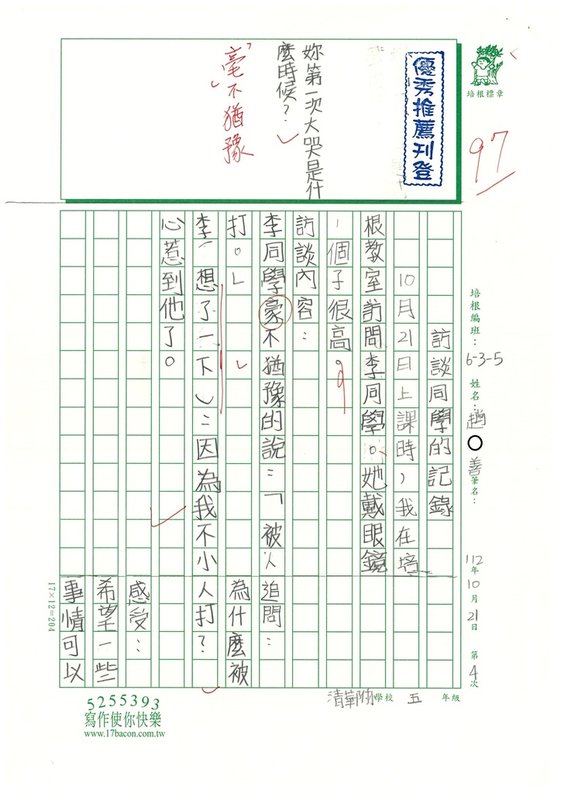 培根標章
97
優秀推薦刊登
妳第一次大哭是什
麼時候？
毫不猶豫
培根編班：6-3-5 姓名：趙○善 筆名：
112年10月21日 第4次
訪談同學的記錄
10月21日上課時，我在培
根教室訪問李同學。她戴眼鏡
，個子很高。
訪談內容：
李同學豪不猶豫的說：「被人
打。」
李（想了一下）：因為我不小
心惹到他了。
追問：
為什麼被
人打？
感受：
希望一些
事情可以
17×12=204
清華附小學校 五 年級
5255393
寫作使你快樂
www.17bacon.com.tw